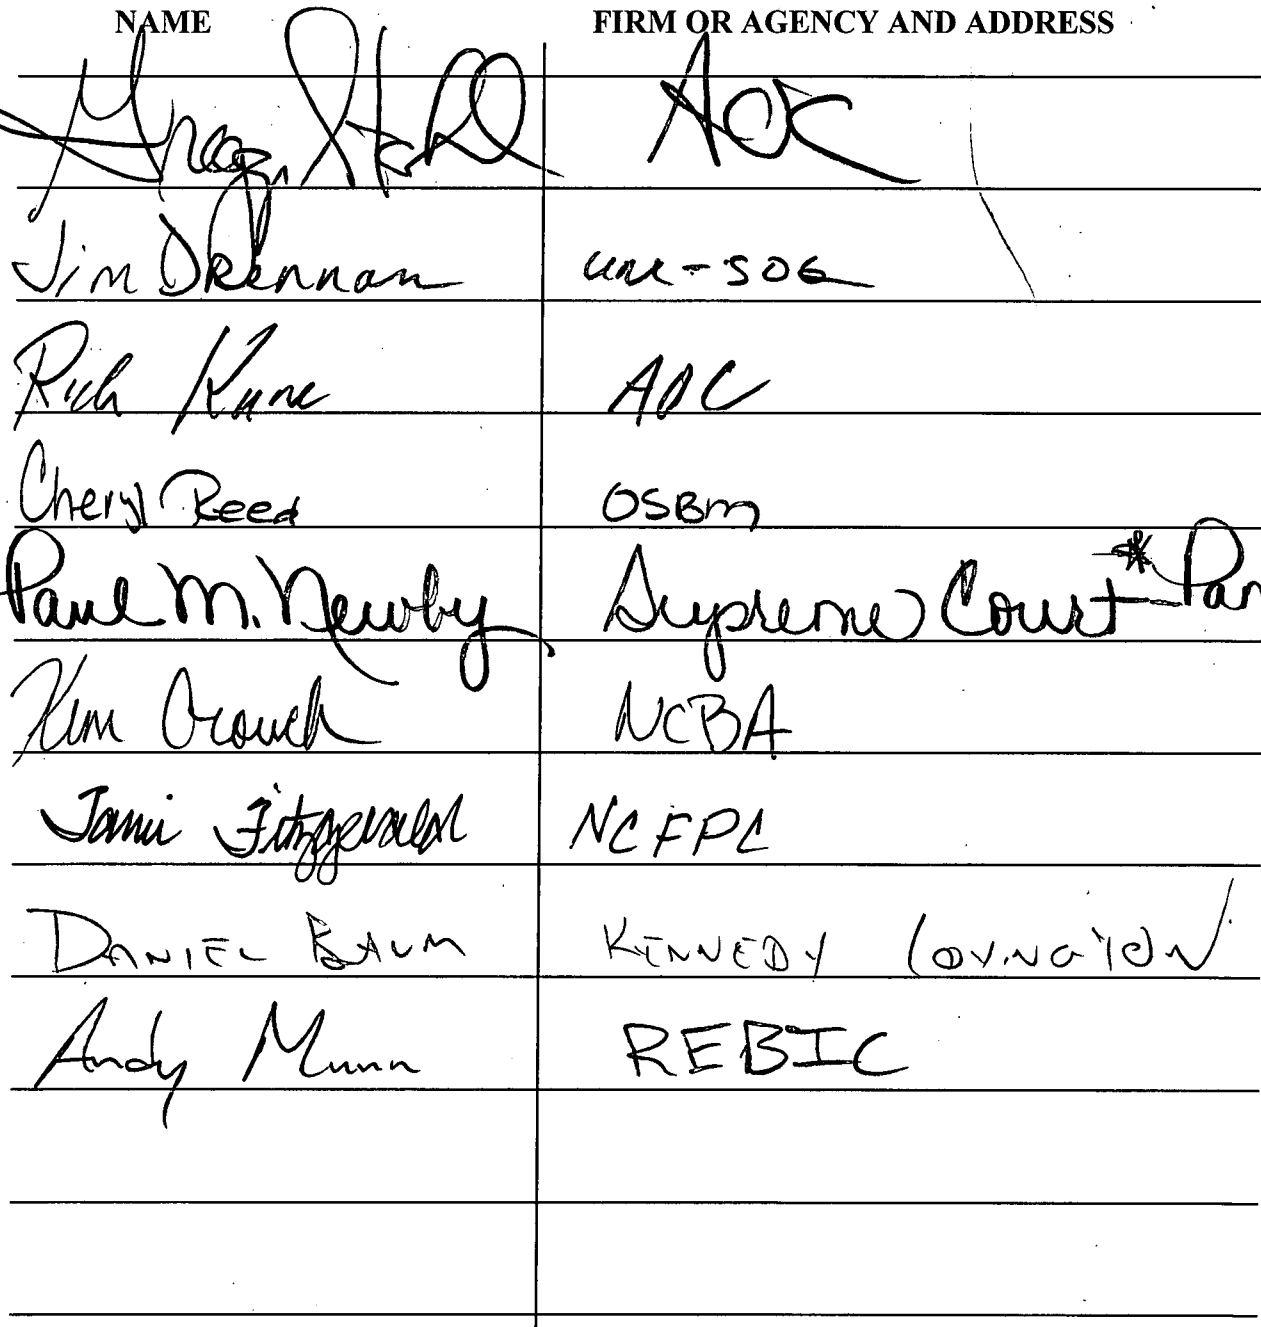 NAME FIRM OR AGENCY AND ADDRESS
Gregg Stahl AOC
Jim Drennan UNC-SOG
Rich Kane AOC
Cheryl Reed OSBM
Paul M. Newby Supreme Court * Pan
Kim Crouch NCBA
Jami Fitzgerald NCFPC
DANIEL BAUM KENNEDY COVINGTON
Andy Munn REBIC